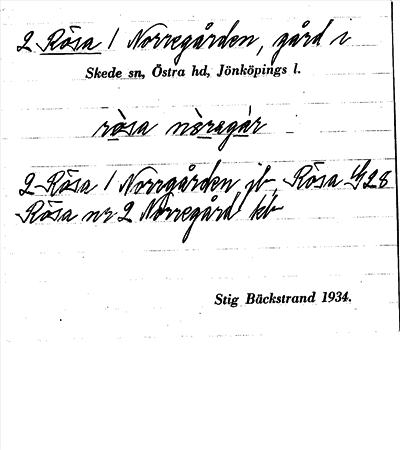 2 Rösa / Norregården, gård i
Skede sn, Östra hd, Jönköpings l.
ròsa nòregår
2 Rösa / Norrgården jb, Rösa 28
Rösa nr 2 Norregård kb
Stig Bäckstrand 1934.